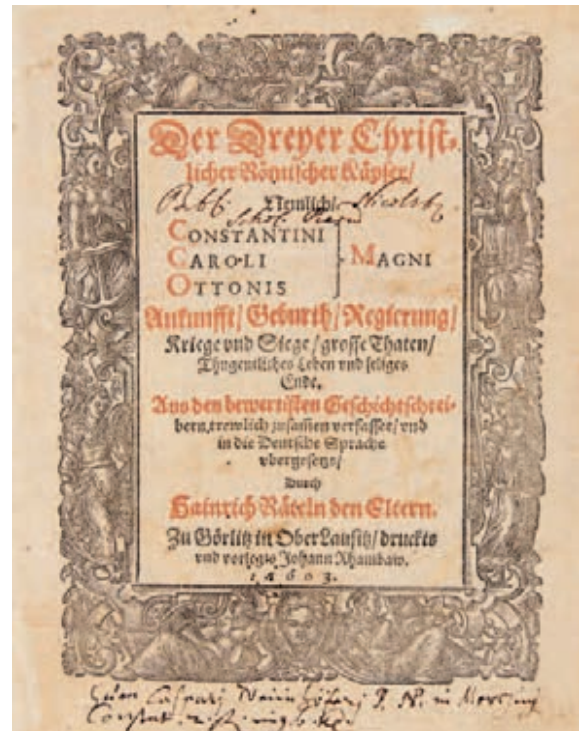 Der Dreyer Christ-
licher Römischer Käyser/
Nemlich/
CONSTANTINI
CAROLI
OTTONIS
MAGNI
Ankunfft/ Geburth/ Regierung/
Kriege vnd Siege/ grosse Thaten/
Thugentliches Leben vnd seliges
Ende.
Aus den bewertisten Geschichtschrei-
bern, trewlich zusamen verfasset/ vnd
in die Deutsche Sprache
vbergesetzt/
Durch
Hainrich Räteln den Eltern.
Zu Görlitz in OberLausitz/ druckts
vnd vorlegts Johann Rhambaw.
1603.